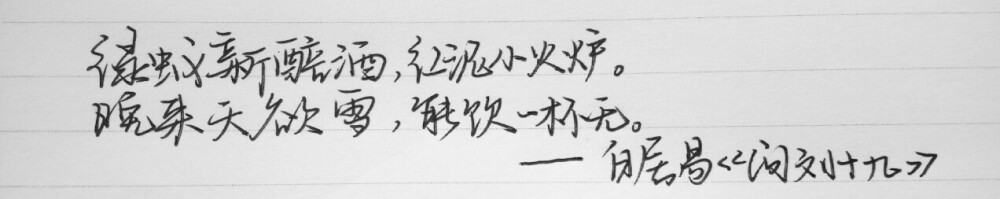 绿蚁新醅酒，红泥小火炉。
晚来天欲雪，能饮一杯无。
——白居易《问刘十九》